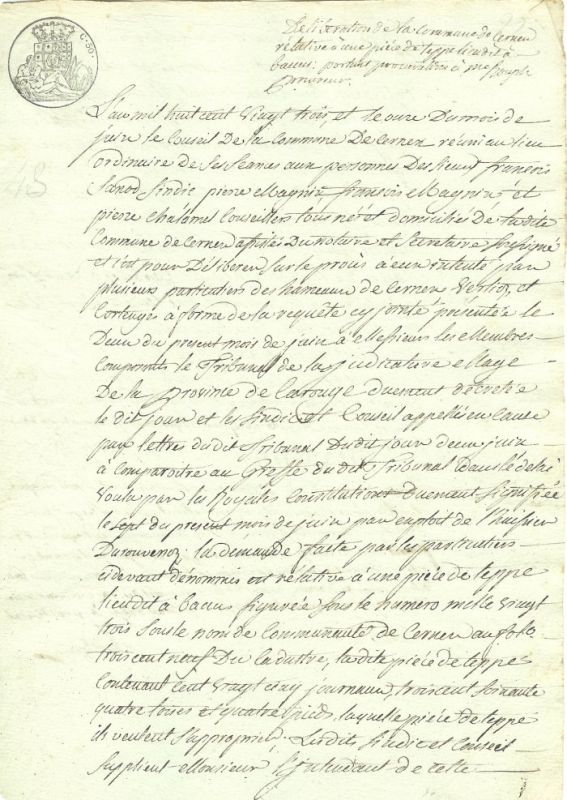 Délibération de la Commune de Cernex
relative à une pièce de teppe lieudit à
bacus: portant procuration à me
Procureur.
L'an mil huit cent vingt trois, et le onze du mois de
juin le Conseil De la Commune De Cernex réuni au lieu
ordinaire de Ses Seances aux personnes Des sieurs françois
Sindic pierre Magnin françois Magnin et
pierre Chatamel Conseillers tous né et domiciliés De ladite
Commune de Cernex assistés Du notaire et Secretaire soussigné
et c'est pour Délibérer, sur le procès a eux intenté par
plusieurs particuliers des hameaux de Cernex Verlioz, et
à forme de la requête cy jointe présentée le
Deux du présent mois de juin à Messieurs les Membres
Composants le Tribunal de la judicature Mage
De la province de Carouge duement décretée
le dit jour et les sindic et Conseil appellés en Cause
par lettres du dit Tribunal Du dit jour deux juin
à Comparoitre au Greffe du dit Tribunal dans le délai
Voulu par les Royales Constitutions Duement Signifiée
le sept du present mois de juin par exploit de l'huissier
Durouvenoz: la demande faite par les particuliers
cidevant dénommés est rélative à une pièce de teppe
lieudit à bacus figurée sous le numero mille vingt
trois sous le nom de Communauté de Cernex au folio
trois cent neuf Du Cadastre, la dite pièce de teppe
Contenant Cent vingt cinq journaux, trois cent soixante
quatre toises et quatre pieds, laquelle pièce de teppe
ils veulent s'approprier; Lesdits sindic et Conseil
Supplient Monsieur l'jntendant de cette